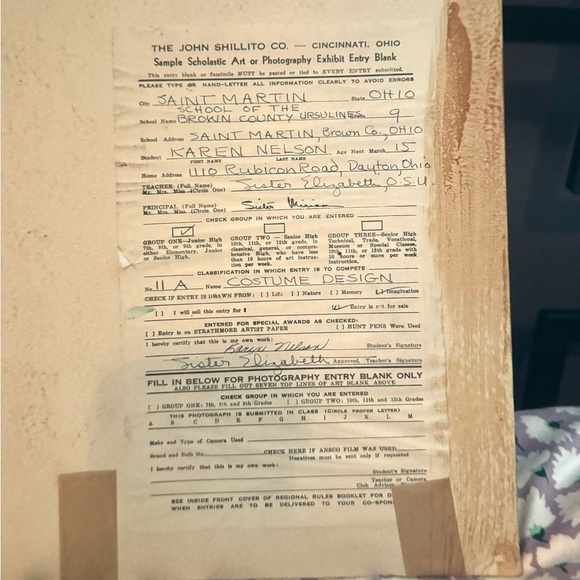 THE JOHN SHILLITO CO. — CINCINNATI, OHIO
Sample Scholastic Art or Photography Exhibit Entry Blank
This entry blank or facsimile MUST be pasted or tied to EVERY ENTRY submitted.
PLEASE TYPE OR HAND-LETTER ALL INFORMATION CLEARLY TO AVOID ERRORS
City SAINT MARTIN State OHIO
SCHOOL OF THE
School Name BROWN COUNTY URSULINES 9
School Address SAINT MARTIN, Brown Co., OHIO
Student KAREN NELSON Age Next March 15
FIRST NAME LAST NAME
Home Address 1110 Rubicon Road, Dayton, Ohio
TEACHER (Full Name) Sister Elizabeth, O.S.U.
Mr. Mrs. Miss (Circle One)
PRINCIPAL (Full Name) Sister Miriam
Mr. Mrs. Miss (Circle One)
CHECK GROUP IN WHICH YOU ARE ENTERED
GROUP ONE—Junior High GROUP TWO — Senior High GROUP THREE—Senior High
7th, 8th, or 9th grade, in 10th, 11th, or 12th grade, in Technical, Trade, Vocational,
either Elementary, Junior classical, general, or compre- Museum or Special Classes,
or Senior High. hensive High, who have less 10th, 11th, or 12th grade with
than 10 hours of art instruc- 10 hours or more per week
tion per week. instruction.
CLASSIFICATION IN WHICH ENTRY IS TO COMPETE
No. 11 A Name COSTUME DESIGN
CHECK IF ENTRY IS DRAWN FROM: [ ] Life [ ] Nature [ ] Memory [✓] Imagination
[ ] I will sell this entry for $ [✓] Entry is not for sale
ENTERED FOR SPECIAL AWARDS AS CHECKED:
[ ] Entry is on STRATHMORE ARTIST PAPER [ ] HUNT PENS Were Used
I hereby certify that this is my own work:
Karen Nelson Student's Signature
Sister Elizabeth Approved, Teacher's Signature
FILL IN BELOW FOR PHOTOGRAPHY ENTRY BLANK ONLY
ALSO PLEASE FILL OUT SEVEN TOP LINES OF ART BLANK ABOVE
CHECK GROUP IN WHICH YOU ARE ENTERED
[ ] GROUP ONE: 7th, 8th and 9th Grades [ ] GROUP TWO: 10th, 11th and 12th Grades
THIS PHOTOGRAPH IS SUBMITTED IN CLASS (CIRCLE PROPER LETTER)
A B C D E F G H I J K L M
Make and Type of Camera Used
Brand and Bulb No. CHECK HERE IF ANSCO FILM WAS USED
Negatives must be sent only if requested
I hereby certify that this is my own work:
Student's Signature
Teacher or Camera
Club
SEE INSIDE FRONT COVER OF REGIONAL RULES BOOKLET FOR
WHEN ENTRIES ARE TO BE DELIVERED TO YOUR